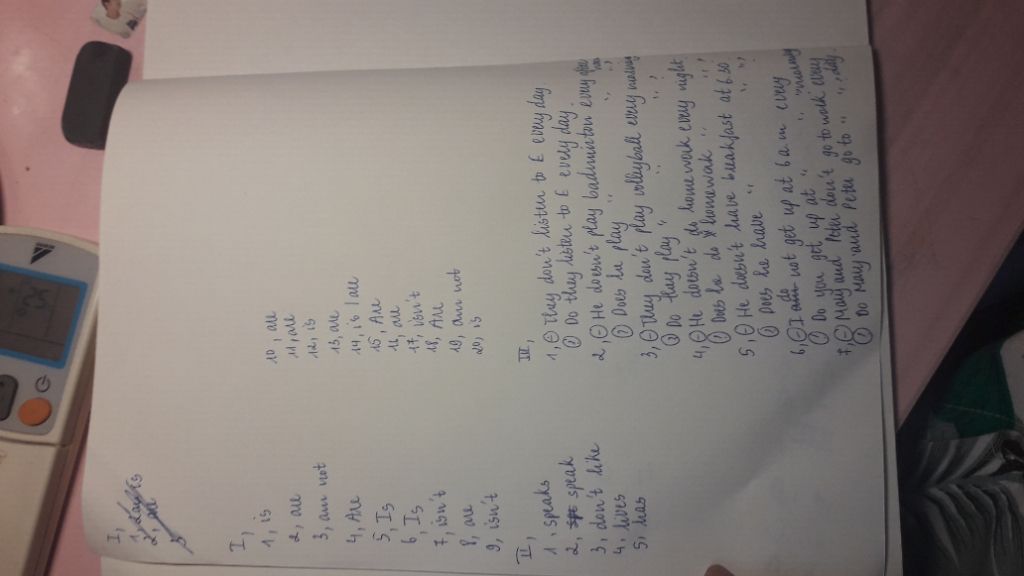 I,
I,
1, is
2, are
3, am not
4, Are
5, Is
6, Is
7, isn't
8, are
9, isn't
10, are
11, are
12, is
13, are
14, is / are
15, Are
16, are
17, isn't
18, Are
19, am not
20, is
II,
1, speaks
2, speak
3, don't like
4, lives
5, has
III,
1, (-) They don't listen to E every day
(?) Do they listen to E every day.
2, (-) He doesn't play badminton every
(?) Does he play " "
3, (-) They don't play volleyball every morning
(?) Do they play " " ?
4, (-) He doesn't do homework every night
(?) Does he do homework " " ?
5, (-) He doesn't have breakfast at 6.30
(?) Does he have " " ?
6, (-) I do not get up at 6 a.m every morning
(?) Do you get up at " "
7, (-) Mary and Peter don't go to work every day.
(?) Do Mary and Peter go to " "